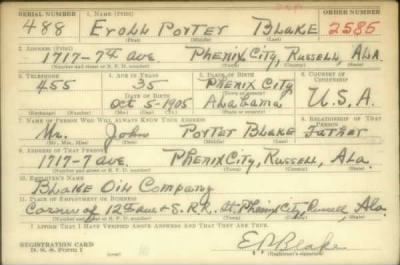 SERIAL NUMBER 1. NAME (Print) ORDER NUMBER
488 Eroll Porter Blake 2585
(First) (Middle) (Last)
2. ADDRESS (Print)
1717-7th ave Phenix City, Russell, Ala.
(Number and street or R. F. D. number) (Town) (County) (State)
3. TELEPHONE 4. AGE IN YEARS 5. PLACE OF BIRTH 6. COUNTRY OF CITIZENSHIP
455 35 Phenix City
DATE OF BIRTH (Town or county)
Oct 5-1905 Alabama U.S.A.
(Mo.) (Day) (Yr.) (State or country)
7. NAME OF PERSON WHO WILL ALWAYS KNOW YOUR ADDRESS 8. RELATIONSHIP OF THAT PERSON
Mr. John Porter Blake Father
(Mr., Mrs., Miss) (First) (Middle) (Last)
9. ADDRESS OF THAT PERSON
1717-7 ave. Phenix City, Russell, Ala.
(Number and street or R. F. D. number) (Town) (County) (State)
10. EMPLOYER'S NAME
Blake Oil Company
11. PLACE OF EMPLOYMENT OR BUSINESS
Corner of 12th ave & S. R.R. St. Phenix City, Russell, Ala.
(Number and street or R. F. D. number) (Town) (County) (State)
I AFFIRM THAT I HAVE VERIFIED ABOVE ANSWERS AND THAT THEY ARE TRUE.
REGISTRATION CARD
D. S. S. FORM 1
E.P. Blake
(Registrant's signature)